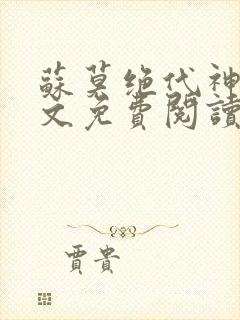 蘇莫绝代神
文免費閱讀
賈貴